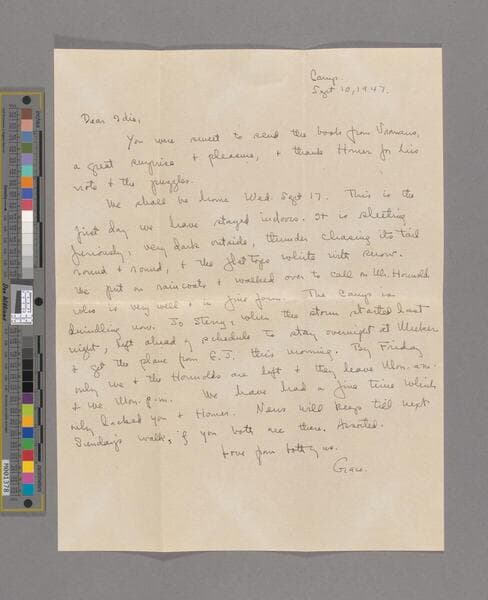 Camp.
Sept 10, 1947.
Dear Idis,
You were sweet to send the book from Vromans,
a great surprise & pleasure, & thank Homer for his
note & the puzzles.
We shall be home Wed. Sept 17. This is the
first day we have stayed indoors. It is sleeting
furiously, very dark outside, thunder chasing its tail
round & round, & the Flat Tops white with snow.
We put on raincoats & walked over to call on Mr.
who is very well & in fine form. The Camp is
dwindling now. Jo when the storm started last
night, left ahead of schedule to stay overnight at Meeker
& get the plane from G.J. this morning. By Friday
only we & the are left & they leave Mon. a.m.
& we Mon. p.m. We have had a fine time which
only lacked you & Homer. News will keep till next
Sunday's walk, if you both are there.
Love from both of us.
Grace.
M001378